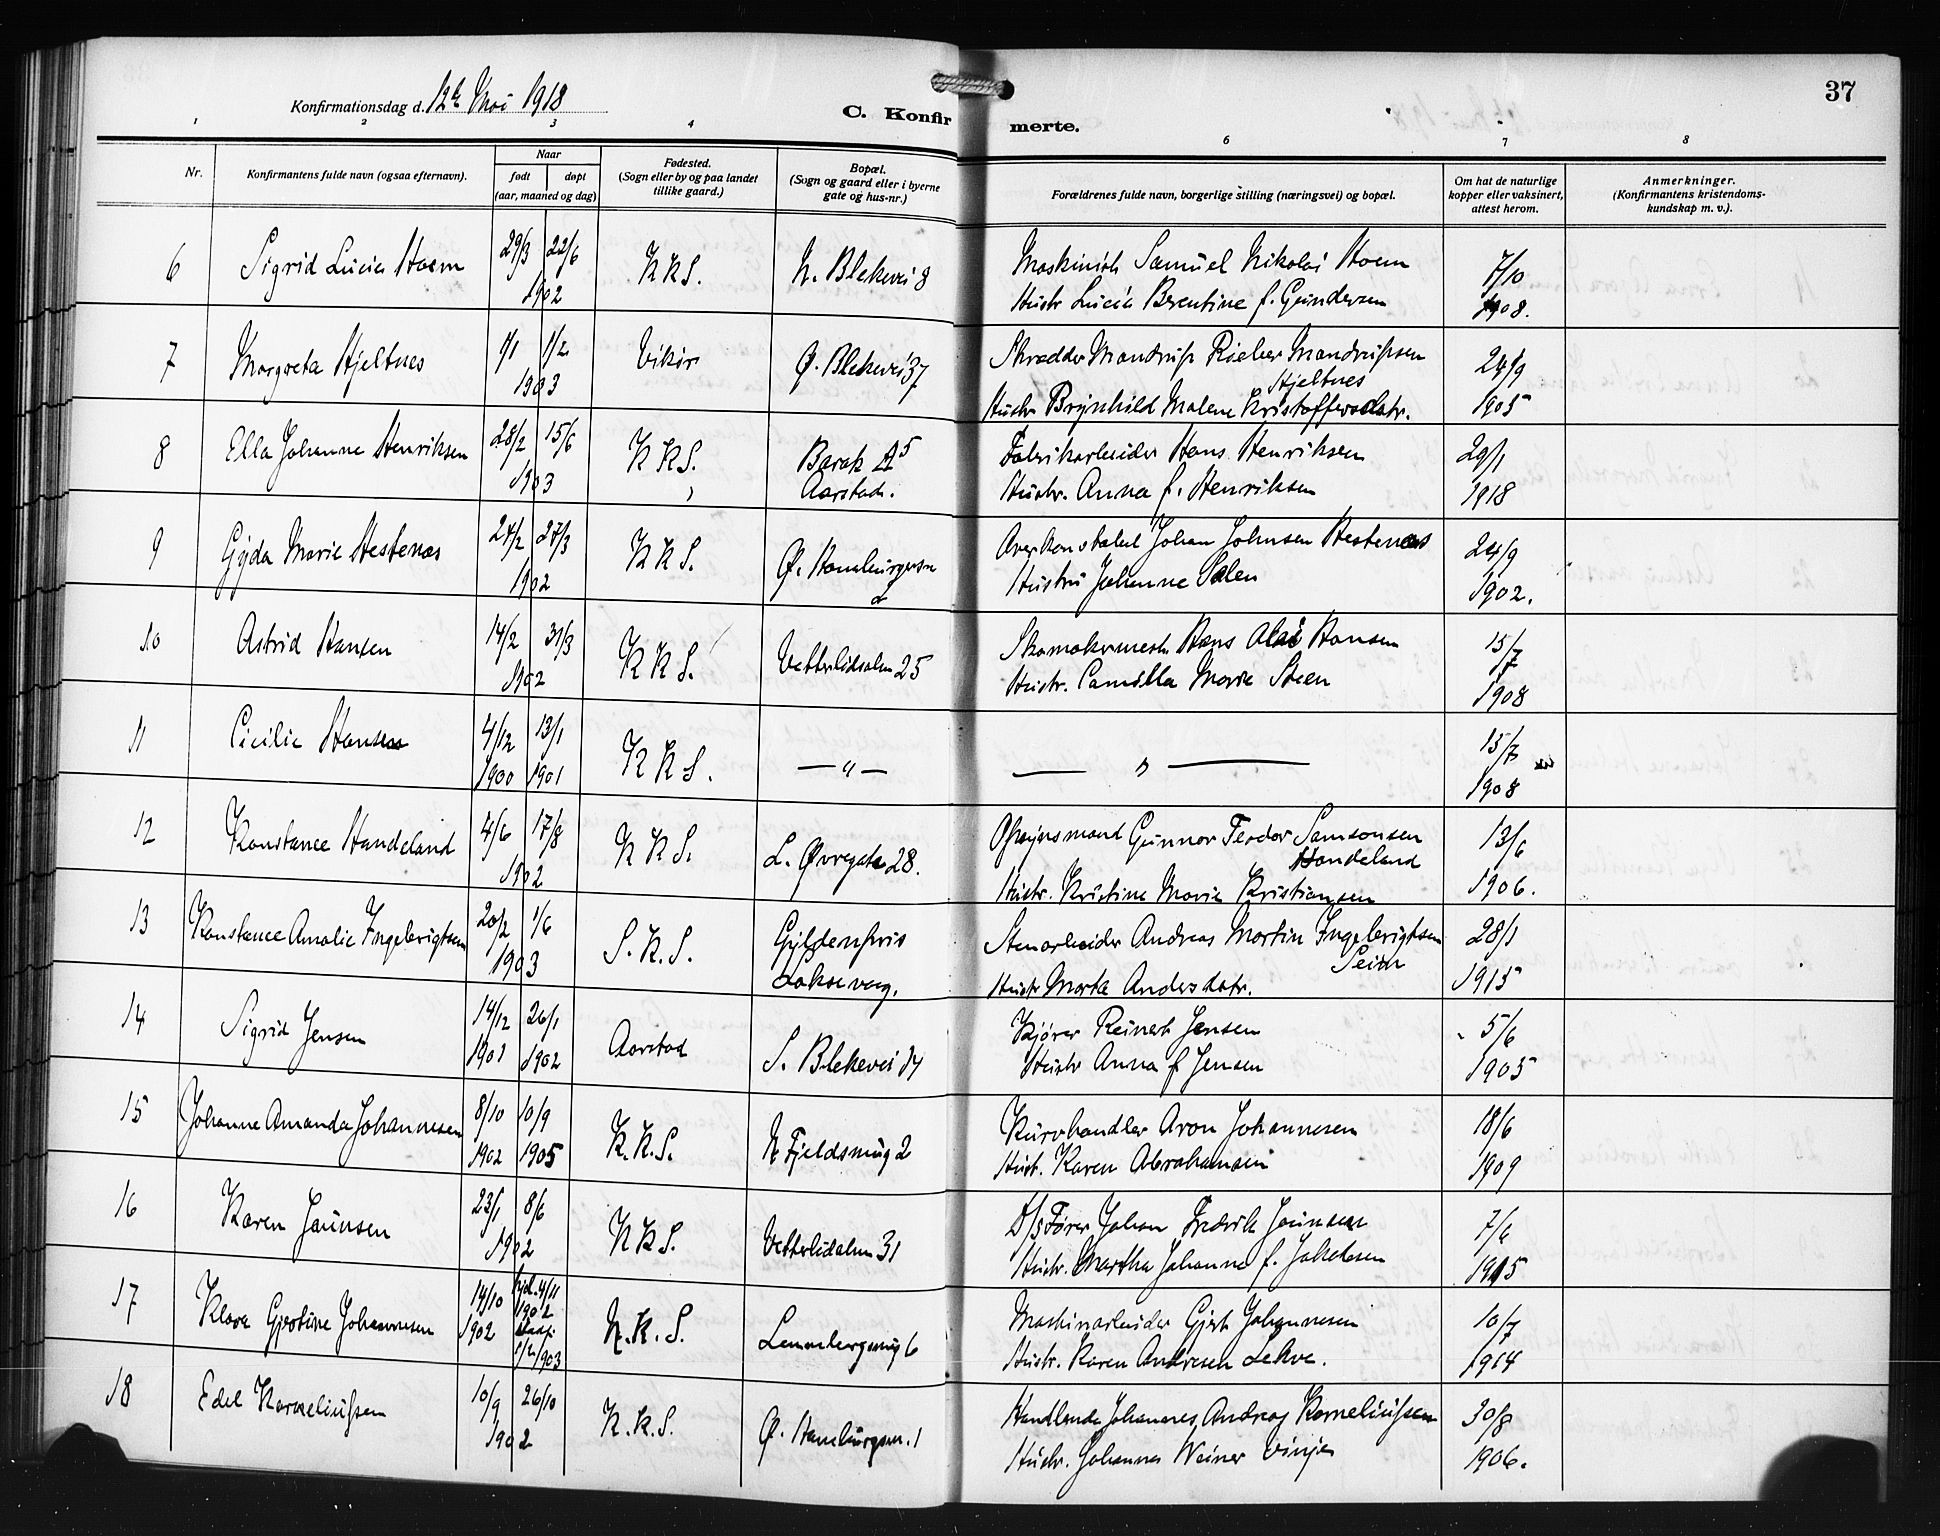 37
Konfirmationsdag d. 12te Mai 1918
C. Konfirmerte.
1 2 3 4 6 7 8
Nr.
Konfirmantens fulde navn (ogsaa efternavn).
Naar
født døpt
(aar, maaned og dag)
Fødested.
(Sogn eller by og paa landet
tillike gaard.)
Bopæl.
(Sogn og gaard eller i byerne
gate og hus-nr.)
Forældrenes fulde navn, borgerlige stilling (næringsvei) og bopæl.
Om hat de naturlige
kopper eller vaksinert,
attest herom.
Anmerkninger.
(Konfirmantens kristendoms-
kundskap m. v.).
6 Sigrid Lucia Hoem 29/3 22/6 K K S. N. Blekevei 8 Maskinist Samuel Nikolai Hoem 7/10
1902 Hustr Lucia Berentine f. Gundersen 1908.
7 Margreta Hjeltnes 1/1 1/2 Vikør Ø. Blekevei 37 Skrædder Mandrup Rieber Mandrupsen 24/9
Hjeltnes
1903 Hustr Brynhild Malene Kristoffersdatr. 1905
8 Ella Johanne Henriksen 28/2 15/6 K K S. Barak A 5 Fabrikarbeider Hans Henriksen 29/1
1903 Aarstad. Hustr. Anna f. Henriksen 1918
9 Gyda Marie Hestenæs 24/2 27/3 K K S. Ø. Hamburgersm Overkonstabel Johan Johnsen Hestenæs 24/9
1902 Hustru Johanne Salen 1902.
10 Astrid Hansen 14/2 31/3 K K S. Vetterlidsalm 25 Skomakermestr Hans Olai Hansen 15/7
1902 Hustr. Camilla Marie Steen 1908
11 Cicilie Hansen 4/12 13/1 K K S. — " — — " — 15/7
1900 1901 1908
12 Konstance Handeland 4/6 17/8 K K S. L. Øvregate 28. Opsynsmand Gunnar Teodor Samsonsen 13/6
Handeland
1902 Hustr. Kristine Marie Kristiansen 1906.
13 Konstance Amalie Ingebrigtsen 20/2 1/6 S. K. S. Gyldenpris Stenarbeider Andreas Martin Ingebrigtsen 28/1
Seim
1903 Laksevaag. Hustr Marta Andersdatr. 1915
14 Sigrid Jensen 14/12 26/1 Aarstad S. Blekevei 14 Kjører Reinert Jensen 5/6
1901 1902 Hustr Anna f Jensen 1905
15 Johanne Amanda Johannesen 8/10 10/9 K. K. S. N Fjeldsmug 2 Kurvhandler Aron Johannesen 18/6
1902 1905 Hust. Karen Abrahamsen 1909
16 Karen Jaunsen 23/1 8/6 N K S. Vetterlidalm 31 D/S Fører Johan Fredrik Jaunsen 7/6
1902 Hustr. Martha Johanne f. Jakobsen 1915
17 Klara Gjertine Johannesen 14/10 hjd. 4/11 N. K. S. Lemmbergsmug 6 Maskinarbeider Gjert Johannesen 10/7
1902 1902 Hustr. Karen Andresen Lekve. 1914
1903
18 Edel Korneliussen 10/9 26/10 K. K. S. Ø. Hamburgsm. 1 Handlende Johannes Andreas Korneliussen 30/8
1902 Hustr. Johanna Weiner Vinje 1906.